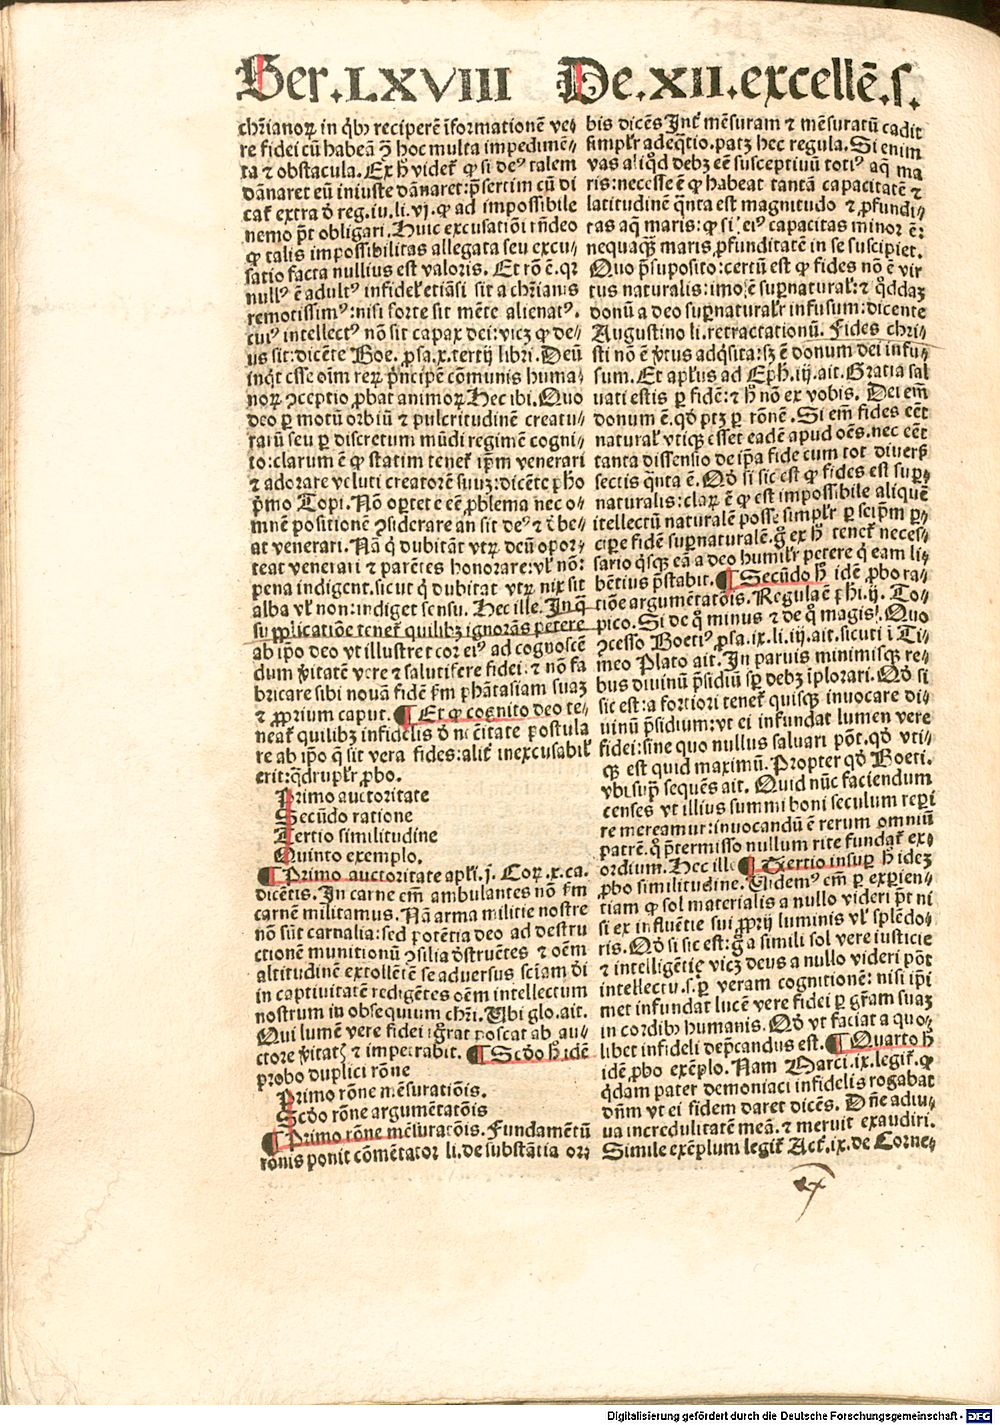 Ser.LXVIII De.XII.excellē.s.
chr̄ianoꝝ in qͥbꝰ reciperē īformationē ve⸗
re fidei cū habeā ꝓ hoc multa impedimē⸗
ta ⁊ obstacula. Ex hͦ videt͛ ꝙ si deꝰ talem
dānaret eū iniuste dānaret: p̄sertim cū di
cat͛ extra ð reg. iu. li. vj. ꝙ ad impossibile
nemo pōt obligari. Huic excusatiōi rn̄deo
ꝙ talis impossibilitas allegata seu excu⸗
satio facta nullius est valoris. Et rō ē. qꝛ
nullꝰ ē adultꝰ infidel̓ etiāsi sit a chr̄ianis
remotissimꝰ: nisi forte sit mēte alienatꝰ.
cuiꝰ intellectꝰ nō sit capax dei: vicꝫ ꝙ de⸗
us sit: dicēte Boe. ꝓsa. x. tertij libri. Deū
inqͥt esse oīm reꝝ pͥncipē cōmunis huma⸗
noꝝ ꝯceptio ꝓbat animoꝝ Hec ibi. Quo
deo ꝑ motū orbiū ⁊ pulcritudinē creatu⸗
rarū seu ꝑ discretum mūdi regimē cogni⸗
to: clarum ē ꝙ statim tenet͛ ip̄m venerari
⁊ adorare veluti creatorē suuꝫ: dicēte pͪho
pͥmo Topi. Nō oꝑtet eē ꝓblema nec o⸗
mnē positionē ꝯsiderare an sit deꝰ ⁊ ð be⸗
at venerari. Nā qͥ dubitāt vtꝝ deū opor⸗
teat venerari ⁊ parētes honorare: vl̓ nō:
pena indigent. sicut qͥ dubitat vtꝝ nix sit
alba vl̓ non: indiget sensu. Hec ille. In qͣ
supplicatiōe tenet͛ quilibꝫ ignorās petere
ab ip̄o deo vt illustret cor eiꝰ ad cognoscē
dum v̓itatē vere ⁊ salutifere fidei: ⁊ nō fa
bricare sibi nouā fidē ẜm phātasiam suaꝫ
⁊ ꝓprium caput. ¶ Et ꝙ cognito deo te⸗
neat͛ quilibꝫ infidelis ð n̄cēitate postula
re ab ip̄o qͣ sit vera fides: alit͛ inexcusabil̓
erit: qͣdrupl̓r ꝓbo.
Primo auctoritate
Secūdo ratione
Tertio similitudine
Quinto exemplo.
¶ Primo auctoritate apl̓i. j. Coꝝ. x. ca.
dicētis. In carne em̄ ambulantes nō ẜm
carnē militamus. Nā arma militie nostre
nō sūt carnalia: sed potētia deo ad destru
ctionē munitionū ꝯsilia ðstruētes ⁊ oēm
altitudinē extollētē se aduersus sciām di
in captiuitatē redigētes oēm intellectum
nostrum in obsequium chr̄i. Ubi glo. ait.
Qui lumē vere fidei igͦrat poscat ab au⸗
ctore v̓itatꝭ ⁊ impetrabit. ¶ Scðo hͦ idē
probo duplici rōne
Primo rōne mēsuratiōis.
Scðo rōne argumētatōis
¶ Primo rōne mēsuratōis. Fundamētū
rōnis ponit cōmētator li. de substātia or⸗
bis dicēs Int͛ mēsuram ⁊ mēsuratū cadit
simpl̓r adeqͣtio. patꝫ hec regula. Si enim
vas aliqͦd debꝫ eē susceptiuū totiꝰ aqͣ ma
ris: necesse ē ꝙ habeat tantā capacitatē ⁊
latitudinē qͣnta est magnitudo ⁊ ꝓfundi⸗
tas aqͣ maris: ꝙ si eiꝰ capacitas minor ē:
nequaqͣꝫ maris ꝓfunditatē in se suscipiet.
Quo p̄suposito: certū est ꝙ fides nō ē vir
tus naturalis: imo ē suꝑnatural̓: ⁊ qͦddaꝫ
donū a deo suꝑnatural̓r infusum: dicente
Augustino li. retractationū. Fides chri⸗
sti nō ē v̓tus adqͥsita: sꝫ ē donum dei infu⸗
sum. Et apl̓us ad Eph. ij. ait. Gratia sal
uati estis ꝑ fidē: ⁊ hͦ nō ex vobis. Dei em̄
donum ē. qð ptꝫ ꝑ rōnē. Si em̄ fides eēt
natural̓ vtiqꝫ esset eadē apud oēs. nec eēt
tanta dissensio de ip̄a fide cum tot diuersꝭ
sectis qͣnta ē. Qð si sic est ꝙ fides est suꝑ⸗
naturalis: claꝝ ē ꝙ est impossibile aliquē
ītellectū naturalē posse simpl̓r ꝑ seip̄m ꝑ⸗
cipe fidē suꝑnaturalē. gͦ ex hͦ tenet͛ neces⸗
sario qͥsqꝫ eā a deo humil̓r petere qͥ eam li⸗
bētius p̄stabit. ¶ Secūdo hͦ idē ꝓbo ra⸗
tiōe argumētatōis. Regula ē pͪhi. ij. To⸗
pico. Si de qͦ minus ⁊ de qͦ magis. Quo
ꝯcesso Boetiꝰ ꝓsa. ix. li. iij. ait. sicuti ī Ti⸗
meo Plato ait. In paruis minimisqꝫ re⸗
bus diuinū p̄sidiū sꝑ debꝫ īplorari. Qð si
sic est: a fortiori tenet͛ quisqꝫ inuocare di⸗
uinū p̄sidium: vt ei infundat lumen vere
fidei: sine quo nullus saluari pōt. qð vti⸗
qꝫ est quid maximū. Propter qð Boeti.
vbi supͣ sequēs ait. Quid nūc faciendum
censes vt illius summi boni seculum reperi
re mereamur: inuocandū ē rerum omniū
patrē. qͦ p̄termisso nullum rite fundat͛ ex⸗
ordium. Hec ille ¶ Tertio insuꝑ hͦ ideꝫ
ꝓbo similitudine. Uidemꝰ em̄ ꝑ exꝑien⸗
tiam ꝙ sol materialis a nullo videri pōt ni
si ex influētie sui ꝓprij luminis vl̓ splēdo⸗
ris. Qð si sic est: gͦ a simili sol vere iusticie
⁊ intelligētię vicꝫ deus a nullo videri pōt
intellectu. s. ꝑ veram cognitionē: nisi ip̄i
met infundat lucē vere fidei ꝑ gr̄am suaꝫ
in cordibꝰ humanis. Qð vt faciat a quo⸗
libet infideli dep̄candus est. ¶ Quarto hͦ
idē ꝓbo exēplo. Nam Marci. ix. legit͛. ꝙ
qͥdam pater demoniaci infidelis rogabat
dn̄m vt ei fidem daret dicēs. Dn̄e adiu⸗
ua incredulitatē meā. ⁊ meruit exaudiri.
Simile exēplum legit͛ Act. ix. de Corne⸗
Digitalisierung gefördert durch die Deutsche Forschungsgemeinschaft - DFG